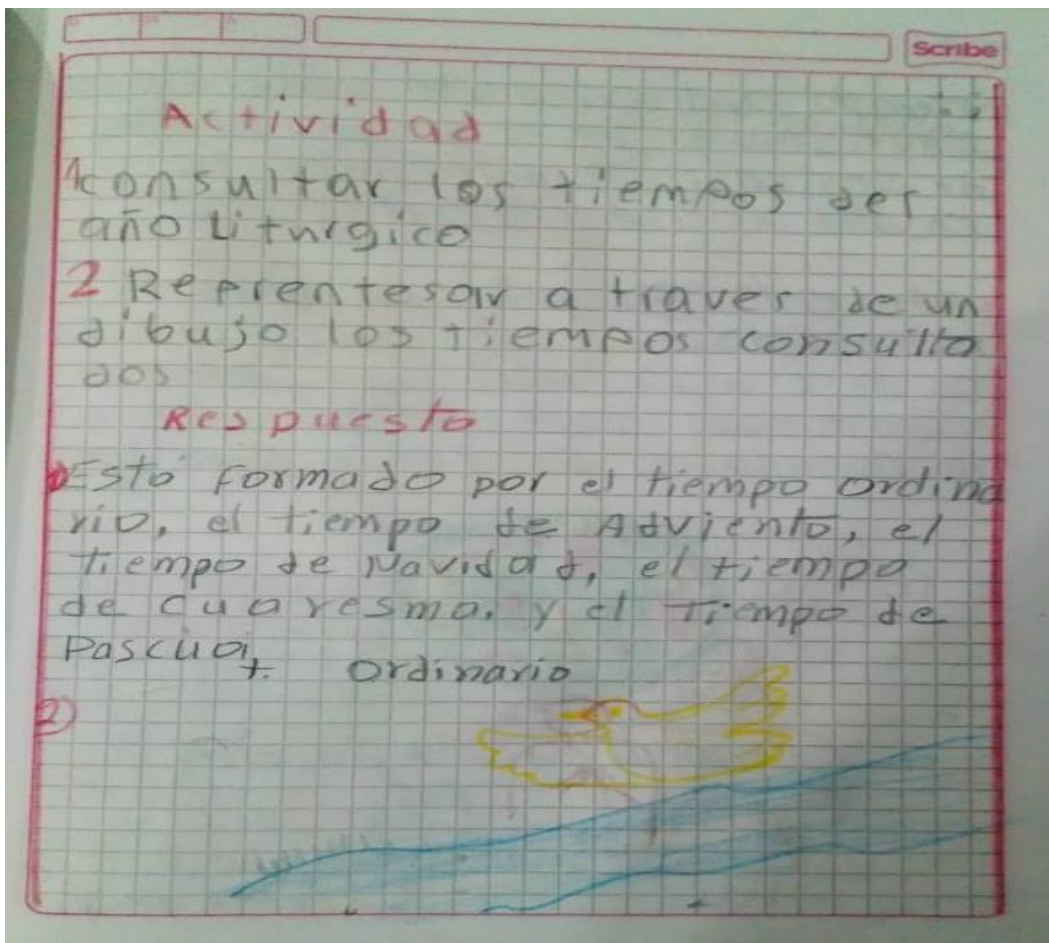 Scribe
Actividad
1 consultar los tiempos del
año Liturgico
2 Reprentesar a traves de un
dibujo los tiempos consulta
dos
Respuesta
1) Esta formado por el tiempo ordina
rio, el tiempo de Adviento, el
tiempo de Navidad, el tiempo
de cuaresma, y el tiempo de
Pascua
t. Ordinario
2)